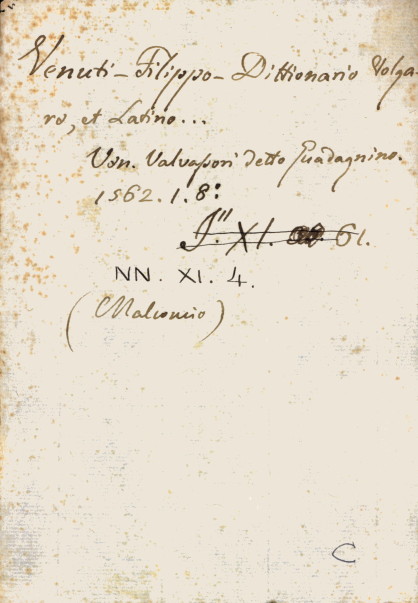 Venuti - Filippo - Dittionario Volga-
ro, et Latino...
Ven. Valvasori detto Guadagnino.
1562. 1. 8:
J." XI. 61.
NN. XI. 4.
(Malconcio)
C